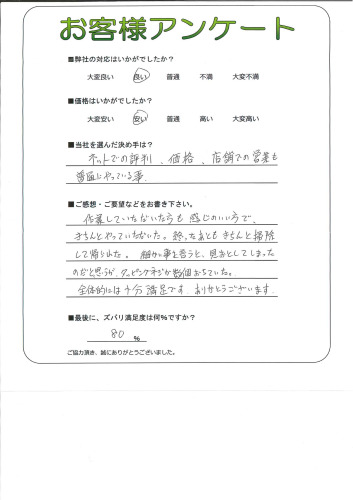 お客様アンケート
■弊社の対応はいかがでしたか？
大変良い 良い 普通 不満 大変不満
■価格はいかがでしたか？
大変安い 安い 普通 高い 大変高い
■当社を選んだ決め手は？
ネットでの評判、価格、店舗での営業も
普通にやっている事.
■ご感想・ご要望などをお書き下さい。
作業していただいた方も感じのいい方で、
きちんとやっていただいた。終ったあともきちんと掃除
して帰られた。細かい事を言うと、見おとしてしまった
のだと思うが、タッピングネジが数個おちていた。
全体的には十分満足です。ありがとうございます.
■最後に、ズバリ満足度は何％ですか？
80 ％
ご協力頂き、誠にありがとうございました。